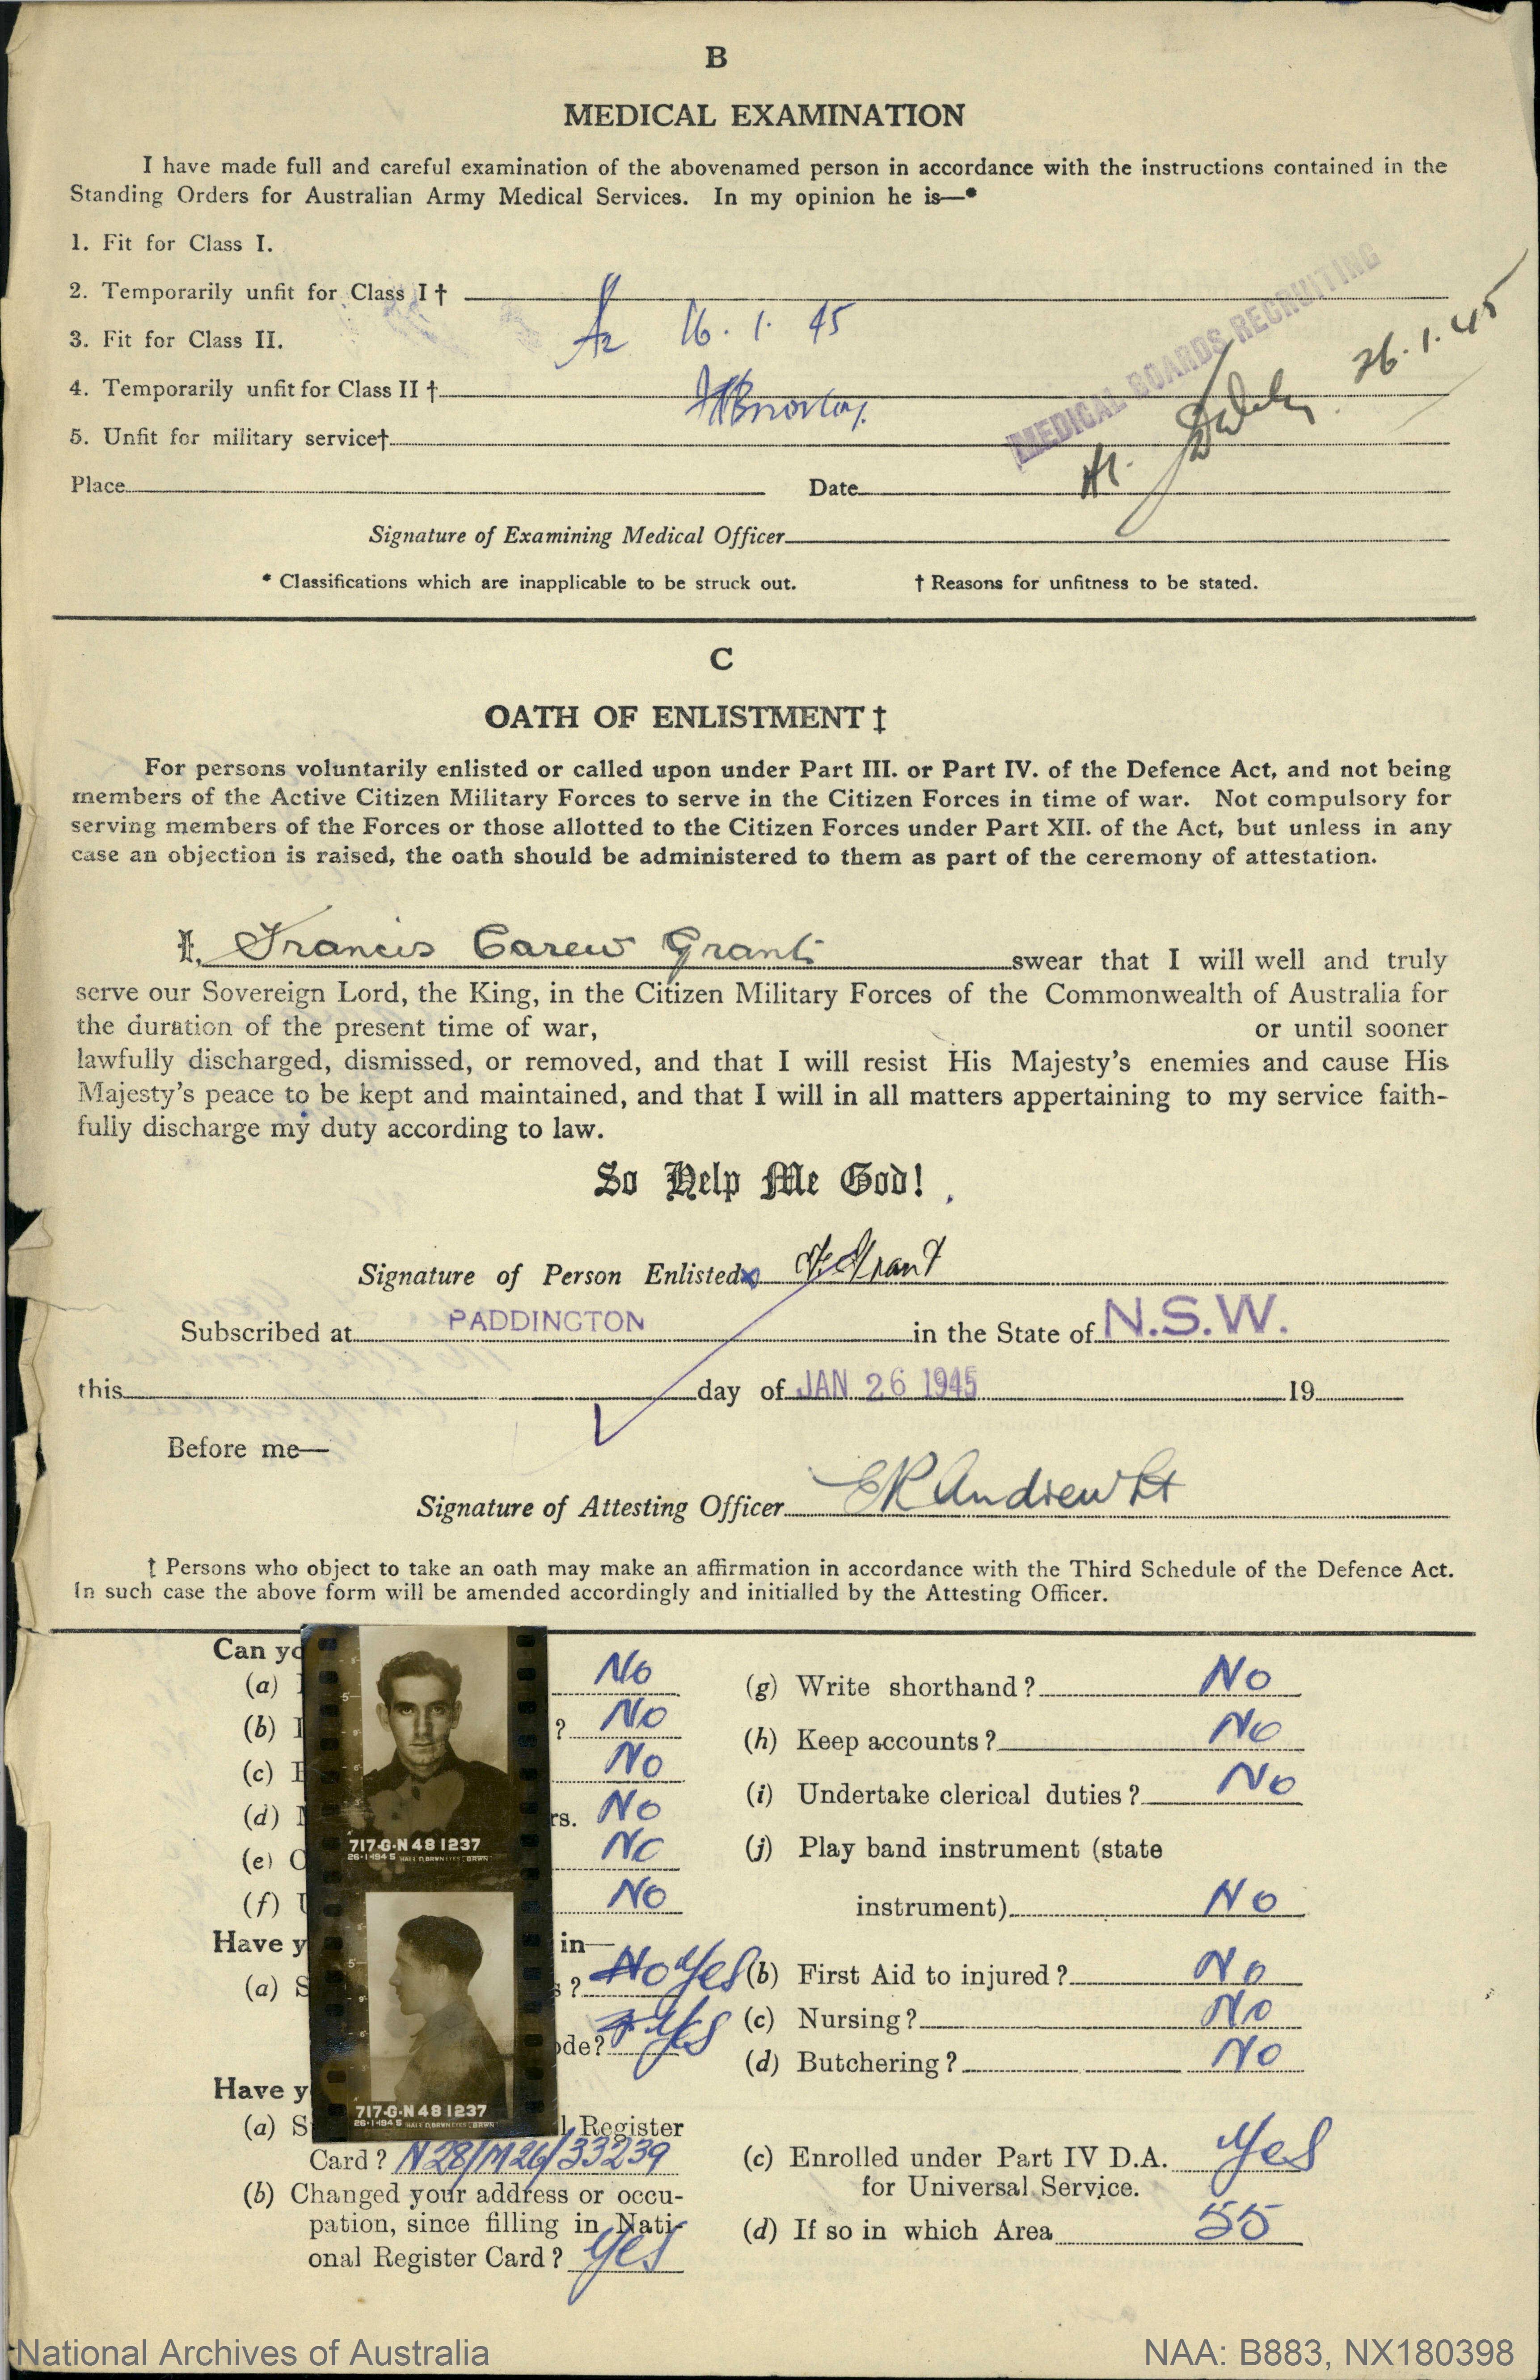 B
MEDICAL EXAMINATION
I have made full and careful examination of the abovenamed person in accordance with the instructions contained in the
Standing Orders for Australian Army Medical Services. In my opinion he is—*
1. Fit for Class I.
2. Temporarily unfit for Class I †
3. Fit for Class II.
16. 1. 45
MEDICAL BOARDS RECRUITING
26.1.45
4. Temporarily unfit for Class II †
5. Unfit for military service†
Place
Date
Signature of Examining Medical Officer
* Classifications which are inapplicable to be struck out.
† Reasons for unfitness to be stated.
C
OATH OF ENLISTMENT ‡
For persons voluntarily enlisted or called upon under Part III. or Part IV. of the Defence Act, and not being
members of the Active Citizen Military Forces to serve in the Citizen Forces in time of war. Not compulsory for
serving members of the Forces or those allotted to the Citizen Forces under Part XII. of the Act, but unless in any
case an objection is raised, the oath should be administered to them as part of the ceremony of attestation.
I, Francis Carew Grant swear that I will well and truly
serve our Sovereign Lord, the King, in the Citizen Military Forces of the Commonwealth of Australia for
the duration of the present time of war, or until sooner
lawfully discharged, dismissed, or removed, and that I will resist His Majesty's enemies and cause His
Majesty's peace to be kept and maintained, and that I will in all matters appertaining to my service faith-
fully discharge my duty according to law.
So Help Me God!
Signature of Person Enlisted x F. Grant
Subscribed at PADDINGTON in the State of N.S.W.
this day of JAN 26 1945 19
Before me—
Signature of Attesting Officer E R Andrew Lt
‡ Persons who object to take an oath may make an affirmation in accordance with the Third Schedule of the Defence Act.
In such case the above form will be amended accordingly and initialled by the Attesting Officer.
Can yo
(a) No
(b) ? No
(c) No
(d) rs. No
(e) No
(f) No
717·G·N 481237
26·1·1945
Have y in—
(a) S s? No Yes
ode? Yes
717·G·N 481237
26·1·1945
Have y
(a) S l Register
Card? N28/M26/33239
(b) Changed your address or occu-
pation, since filling in Nati-
onal Register Card? Yes
(g) Write shorthand? No
(h) Keep accounts? No
(i) Undertake clerical duties? No
(j) Play band instrument (state
instrument) No
(b) First Aid to injured? No
(c) Nursing? No
(d) Butchering? No
(c) Enrolled under Part IV D.A. Yes
for Universal Service.
(d) If so in which Area 55
National Archives of Australia
NAA: B883, NX180398